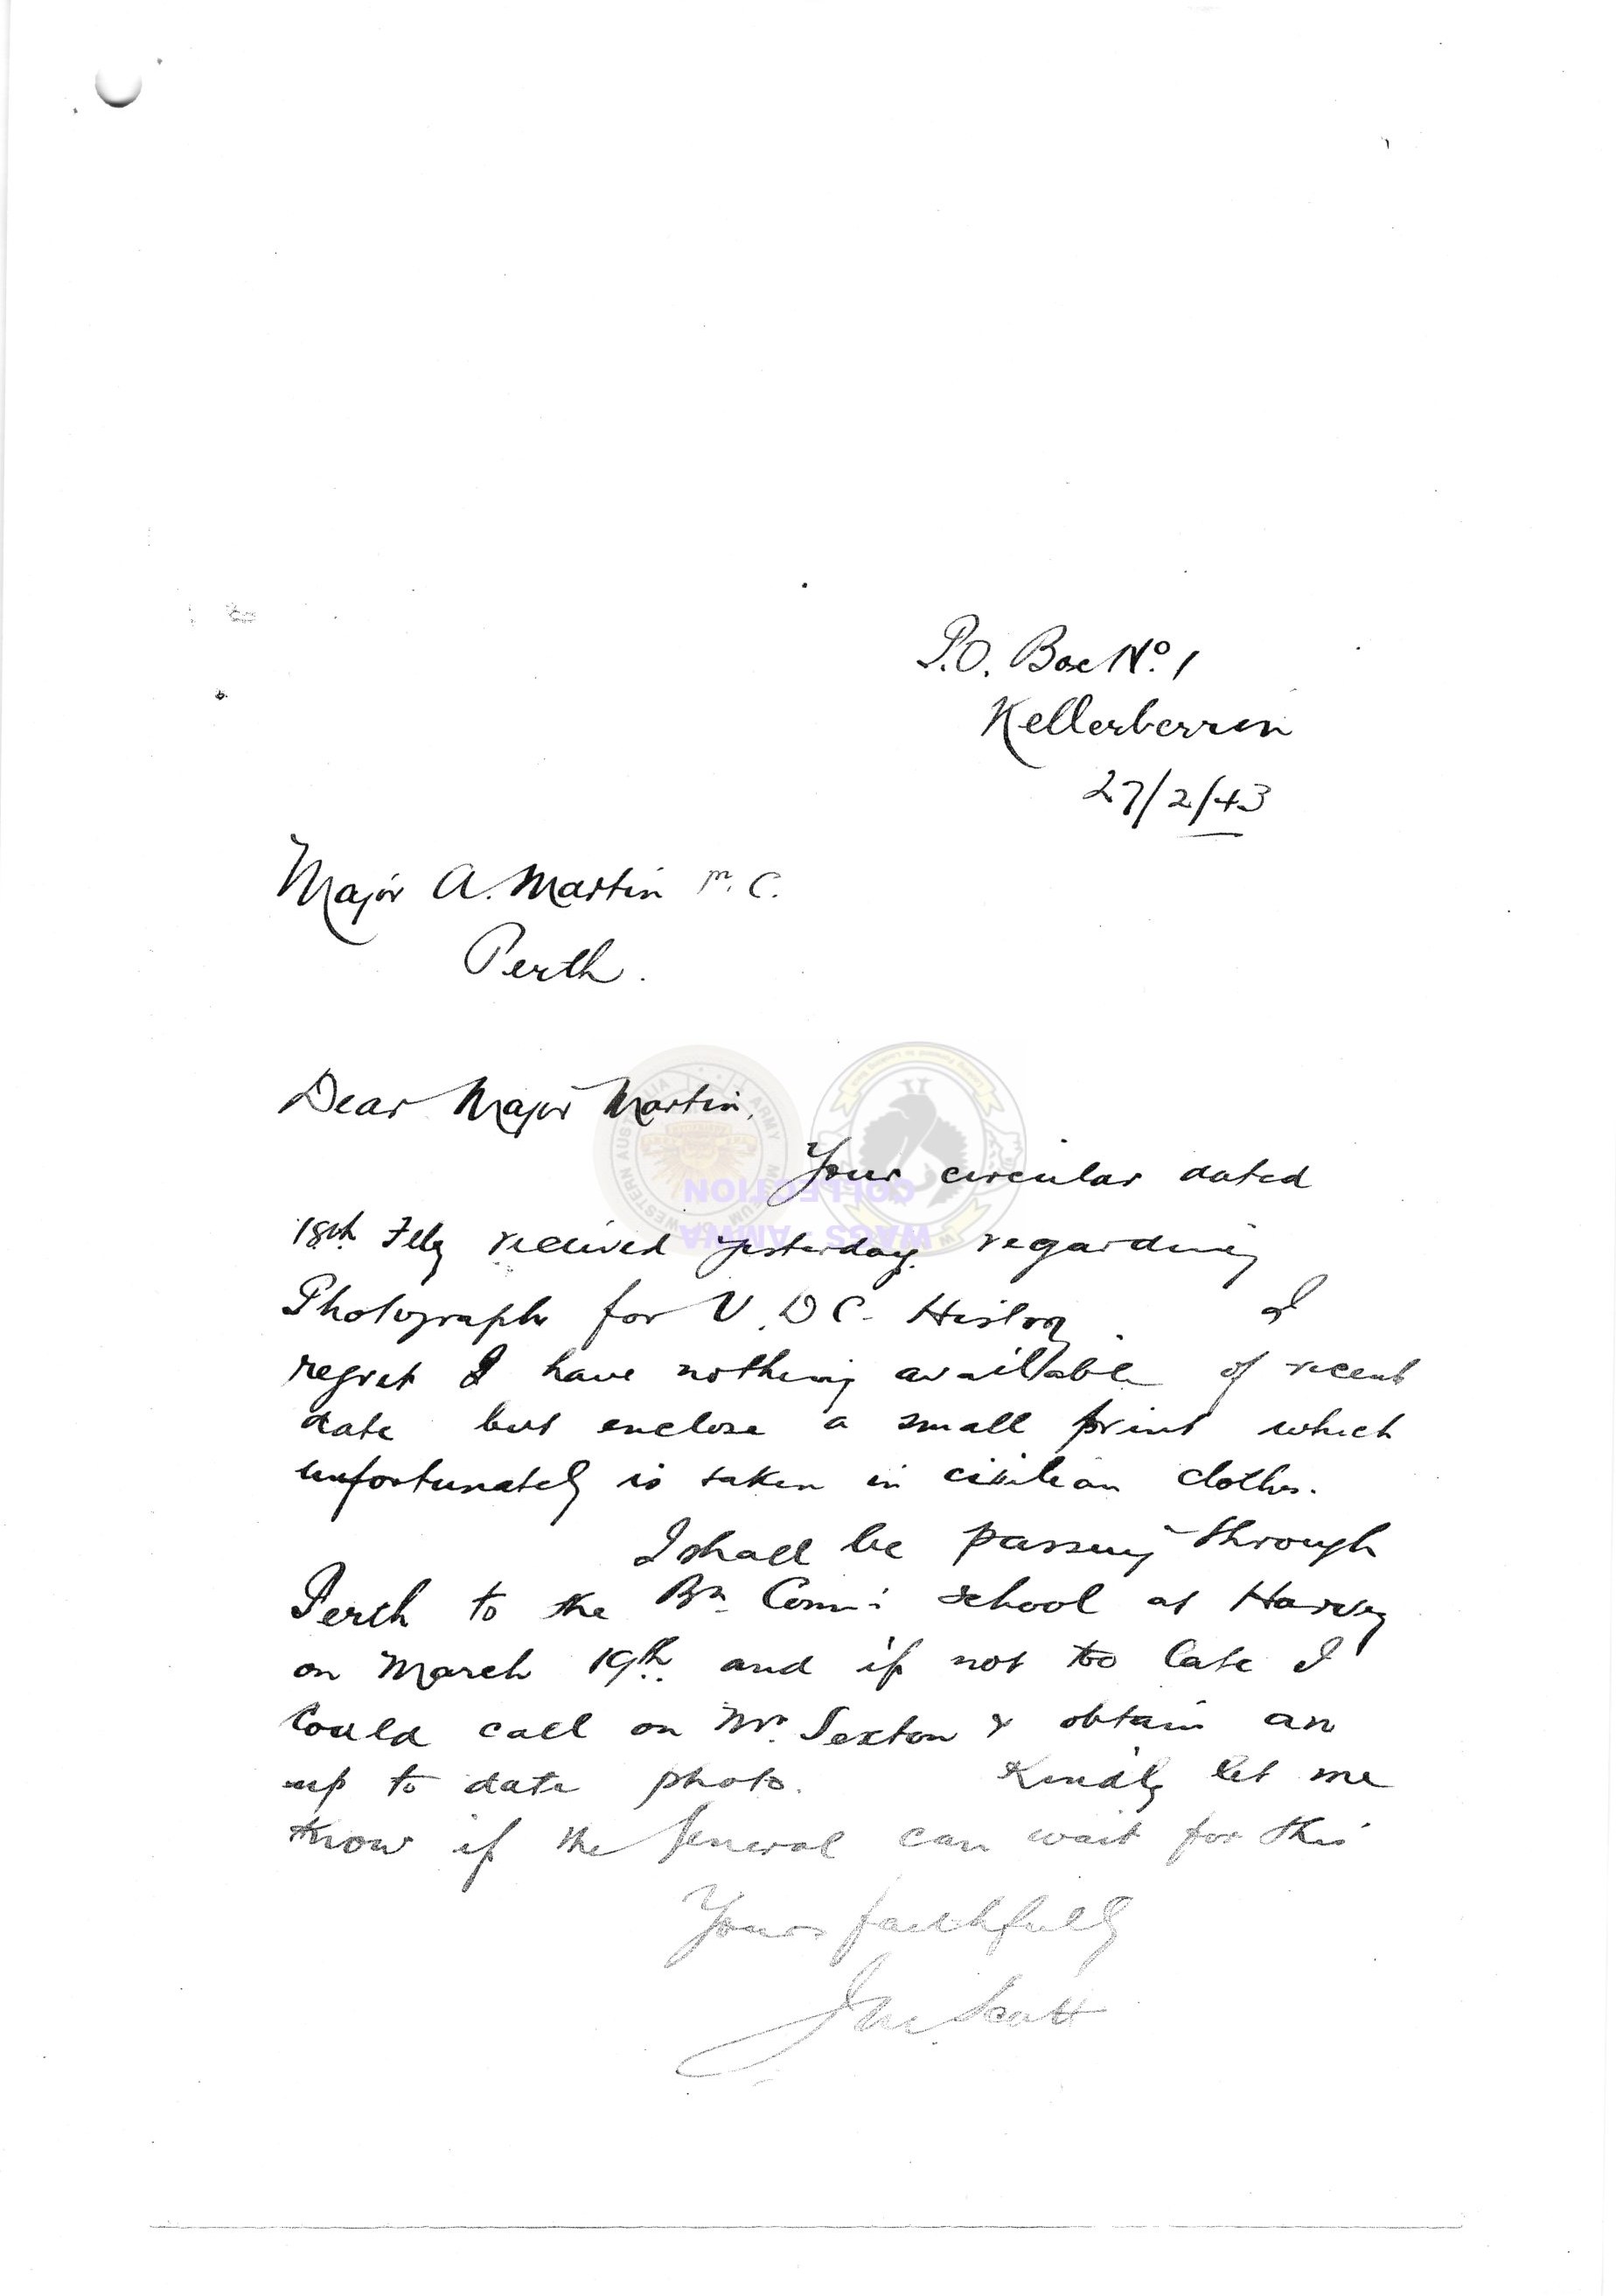 P.O. Box No. 1
Kellerberrin
27/2/43
Major A. Martin M.C.
Perth.
Dear Major Martin,
Your circular dated
18th Feby received yesterday regarding
Photographs for V.D.C. History. I
regret I have nothing available of recent
date but enclose a small print which
unfortunately is taken in civilian clothes.
I shall be passing through
Perth to the Bn. Com: school at Harvey
on March 19th and if not too late I
could call on Mr. Sexton & obtain an
up to date photo. Kindly let me
know if the General can wait for this
Yours faithfully
Scott
WESTERN AUSTRALIA ARMY MUSEUM OF
WAGS - AMWA
COLLECTION